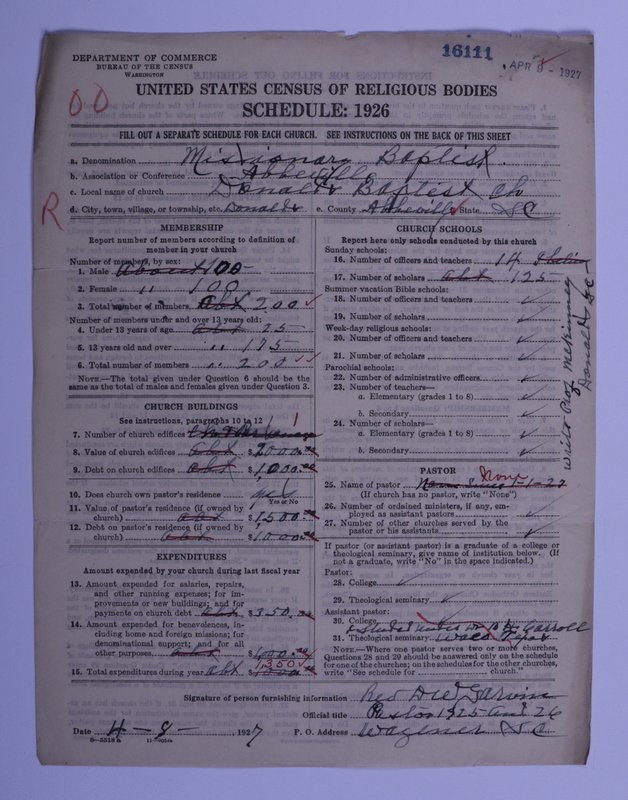 16111
APR 9 - 1927
DEPARTMENT OF COMMERCE
BUREAU OF THE CENSUS
WASHINGTON
UNITED STATES CENSUS OF RELIGIOUS BODIES
SCHEDULE: 1926
FILL OUT A SEPARATE SCHEDULE FOR EACH CHURCH. SEE INSTRUCTIONS ON THE BACK OF THIS SHEET
a. Denomination Missionary Baptist
b. Association or Conference Abbeville
c. Local name of church Donalds Baptist Ch
d. City, town, village, or township, etc. Donalds e. County Abbeville State SC
R
MEMBERSHIP
Report number of members according to definition of
member in your church
Number of members, by sex:
1. Male About 100
2. Female " 100
3. Total number of members Abt 200
Number of members under and over 13 years old:
4. Under 13 years of age abt 25
5. 13 years old and over " 175
6. Total number of members " 200
NOTE.—The total given under Question 6 should be the
same as the total of males and females given under Question 3.
CHURCH BUILDINGS
See instructions, paragraphs 10 to 12
7. Number of church edifices 1
8. Value of church edifices abt $
9. Debt on church edifices abt $ 1000.00
10. Does church own pastor's residence
Yes or No
11. Value of pastor's residence (if owned by
church) abt $ 1500.00
12. Debt on pastor's residence (if owned by
church) abt $ 1000.00
EXPENDITURES
Amount expended by your church during last fiscal year
13. Amount expended for salaries, repairs,
and other running expenses; for im-
provements or new buildings; and for
payments on church debt abt $ 350.00
14. Amount expended for benevolences, in-
cluding home and foreign missions; for
denominational support; and for all
other purposes abt $ 1000.00
1,350
15. Total expenditures during year abt $
CHURCH SCHOOLS
Report here only schools conducted by this church
Sunday schools:
16. Number of officers and teachers 14
17. Number of scholars abt 125
Summer vacation Bible schools:
18. Number of officers and teachers
19. Number of scholars
Week-day religious schools:
20. Number of officers and teachers
21. Number of scholars
Parochial schools:
22. Number of administrative officers
23. Number of teachers—
a. Elementary (grades 1 to 8)
b. Secondary
24. Number of scholars—
a. Elementary (grades 1 to 8)
b. Secondary
Write Prof McKinney
Donalds SC
PASTOR
None
25. Name of pastor None Since 1-1-27
(If church has no pastor, write "None")
26. Number of ordained ministers, if any, em-
ployed as assistant pastors
27. Number of other churches served by the
pastor or his assistants
If pastor (or assistant pastor) is a graduate of a college or
theological seminary, give name of institution below. (If
not a graduate, write "No" in the space indicated.)
Pastor:
28. College
29. Theological seminary
Assistant pastor:
30. College
Carroll
31. Theological seminary Waco Texas
NOTE.—Where one pastor serves two or more churches,
Questions 28 and 29 should be answered only on the schedule
for one of the churches; on the schedules for the other churches,
write "See schedule for church."
Signature of person furnishing information Rev D W Garvin
Official title Pastor 1925 and 26
Date 4-8-, 1927 P. O. Address Wagener SC